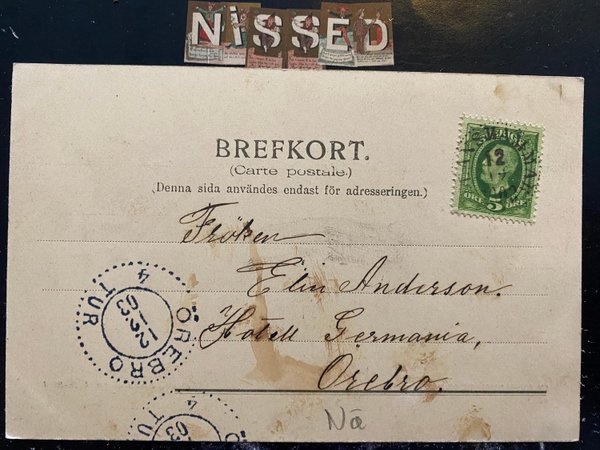 NiSSED
BREFKORT.
(Carte postale.)
(Denna sida användes endast för adresseringen.)
Fröken
Elin Anderson.
Hotell Germania,
Örebro.
Nä
12
5 ÖRE
ÖREBRO
4 TUR
4 TUR